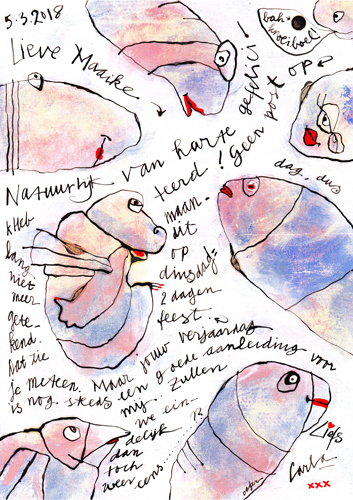 5.3.2018
Lieve Maaike
bah
Natuurlijk van harte gefelici-
teerd! Geen post op
maan-
dag, dus
dit
op
dinsdag:
2 dagen
feest.
k Heb
lang
niet
meer
gete-
kend.
Dat zie
je meteen. Maar jouw verjaardag
is nog steeds een goede aanleiding voor
my.
Zullen
we ein-
delijk
dan
toch
weer
eens......??
Liefs
Carla
xxx